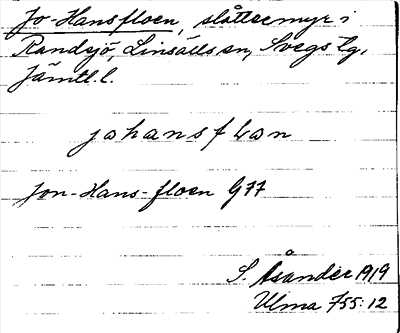 Jo-Hansfloen, slåttermyr i
Randsjö, Linsälls sn, Svegs tg,
Jämtl. l.
johansfloan
Jon-Hans-floen G77
S. Åsander 1919
Ulma 755:12